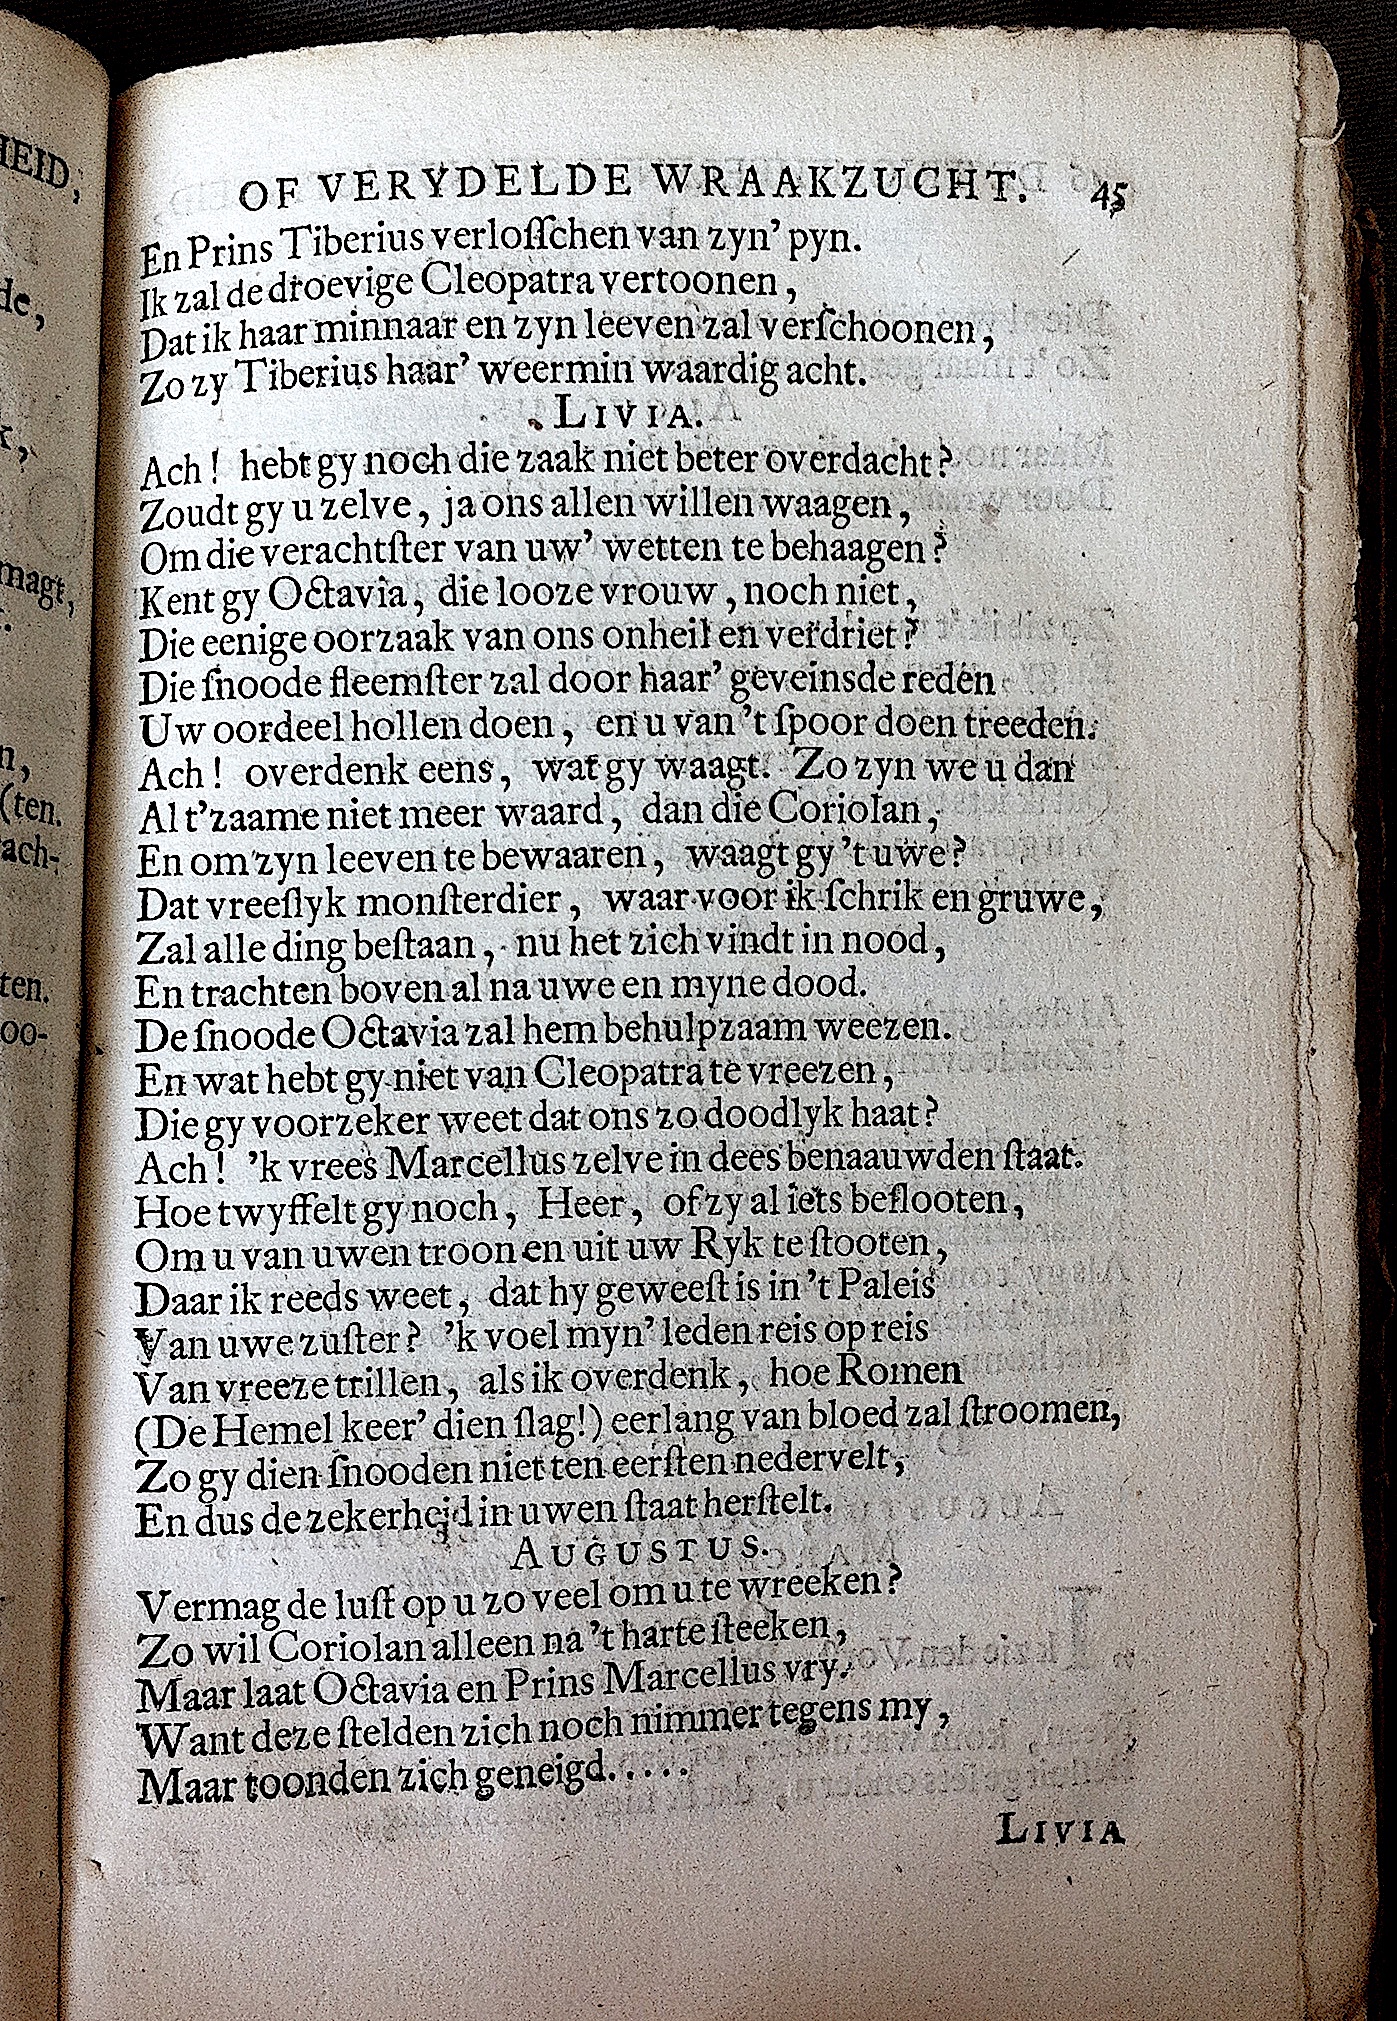 HEID,
de,
magt,
n,
(ten.
ach-
ten.
oo-
OF VERYDELDE WRAAKZUCHT. 45
En Prins Tiberius verlosſchen van zyn' pyn.
Ik zal de droevige Cleopatra vertoonen,
Dat ik haar minnaar en zyn leeven zal verſchoonen,
Zo zy Tiberius haar' weermin waardig acht.
LIVIA.
Ach! hebt gy noch die zaak niet beter overdacht?
Zoudt gy u zelve, ja ons allen willen waagen,
Om die verachtſter van uw' wetten te behaagen?
Kent gy Octavia, die looze vrouw, noch niet,
Die eenige oorzaak van ons onheil en verdriet?
Die ſnoode fleemſter zal door haar' geveinsde reden
Uw oordeel hollen doen, en u van 't ſpoor doen treeden.
Ach! overdenk eens, wat gy waagt. Zo zyn we u dan
Al t'zaame niet meer waard, dan die Coriolan,
En om zyn leeven te bewaaren, waagt gy 't uwe?
Dat vreeſlyk monſterdier, waar voor ik ſchrik en gruwe,
Zal alle ding beſtaan, nu het zich vindt in nood,
En trachten boven al na uwe en myne dood.
De ſnoode Octavia zal hem behulpzaam weezen.
En wat hebt gy niet van Cleopatra te vreezen,
Die gy voorzeker weet dat ons zo doodlyk haat?
Ach! 'k vrees Marcellus zelve in dees benaauwden ſtaat.
Hoe twyffelt gy noch, Heer, of zy al iets beſlooten,
Om u van uwen troon en uit uw Ryk te ſtooten,
Daar ik reeds weet, dat hy geweeſt is in 't Paleis
Van uwe zuſter? 'k voel myn' leden reis op reis
Van vreeze trillen, als ik overdenk, hoe Romen
(De Hemel keer' dien ſlag!) eerlang van bloed zal ſtroomen,
Zo gy dien ſnooden niet ten eerſten nedervelt,
En dus de zekerheid in uwen ſtaat herſtelt.
AUGUSTUS.
Vermag de luſt op u zo veel om u te wreeken?
Zo wil Coriolan alleen na 't harte ſteeken,
Maar laat Octavia en Prins Marcellus vry.
Want deze ſtelden zich noch nimmer tegens my,
Maar toonden zich geneigd.....
LIVIA